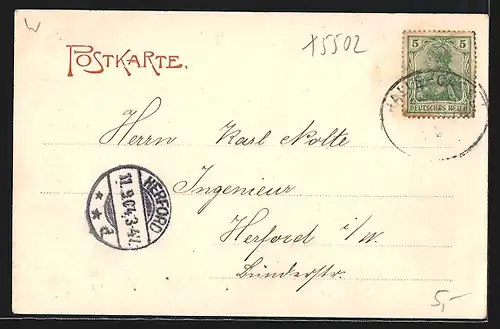 W
x5502
POSTKARTE.
5 5
DEUTSCHES REICH
Herrn Karl Nolte
Ingenieur
Herford i/W.
Bünderstr.
HERFORD
11.9.04.3-4N.
* * d
5,-